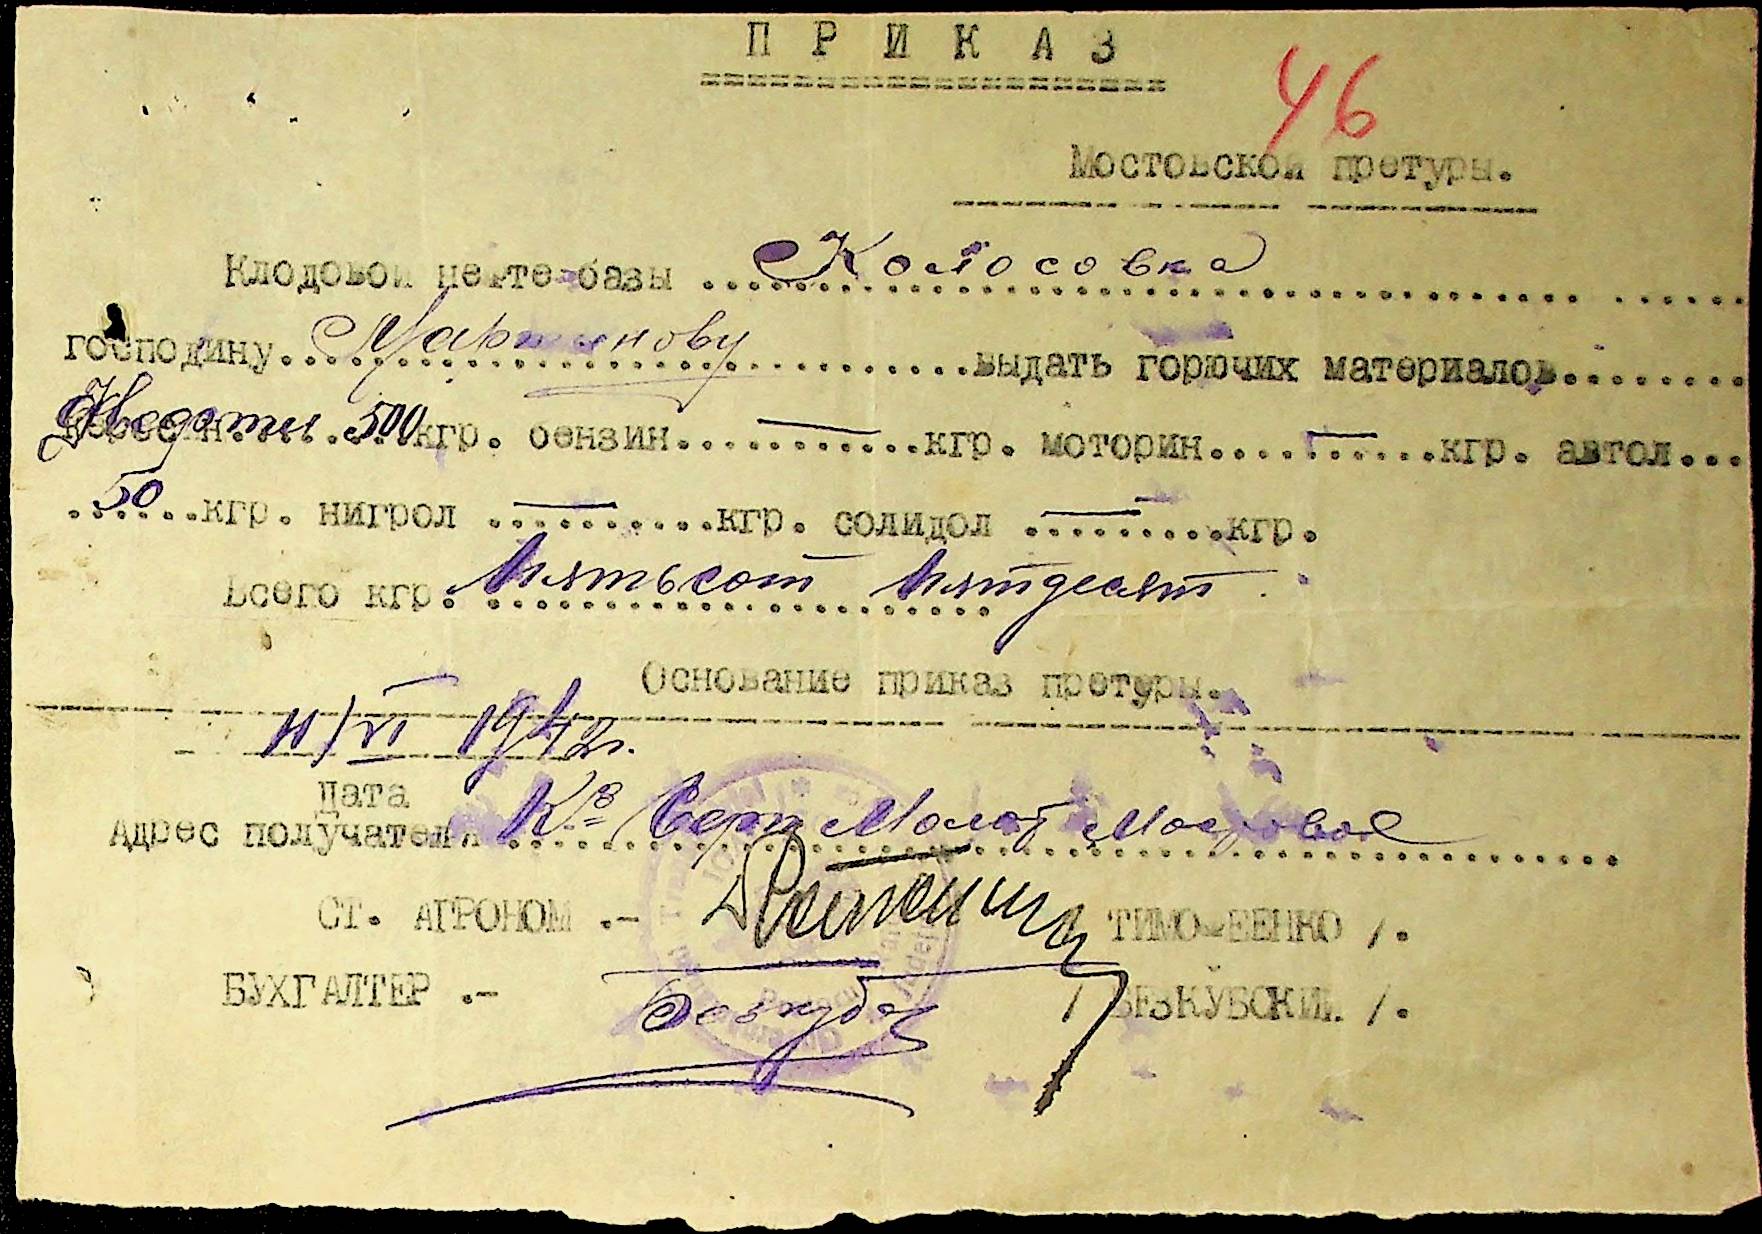 ПРИКАЗ
46
Мостовской претуры.
Клодовой нефте-базы ... Колосовка ...
господину ... Мартынову ... выдать горючих материалов ...
Нефти 500 кгр. бензин ... — ... кгр. моторин ... — ... кгр. автол ...
50 ... кгр. нигрол ... — ... кгр. солидол ... — ... кгр.
Всего кгр. Пятьсот Пятдесят.
Основание приказ претуры.
11/VI 1942г.
Дата
Адрес получателя Серп Молот
СТ. АГРОНОМ .- ТИМОФЕЕНКО /.
БУХГАЛТЕР .- Безкуб / БЕЗКУБСКИЙ. /.